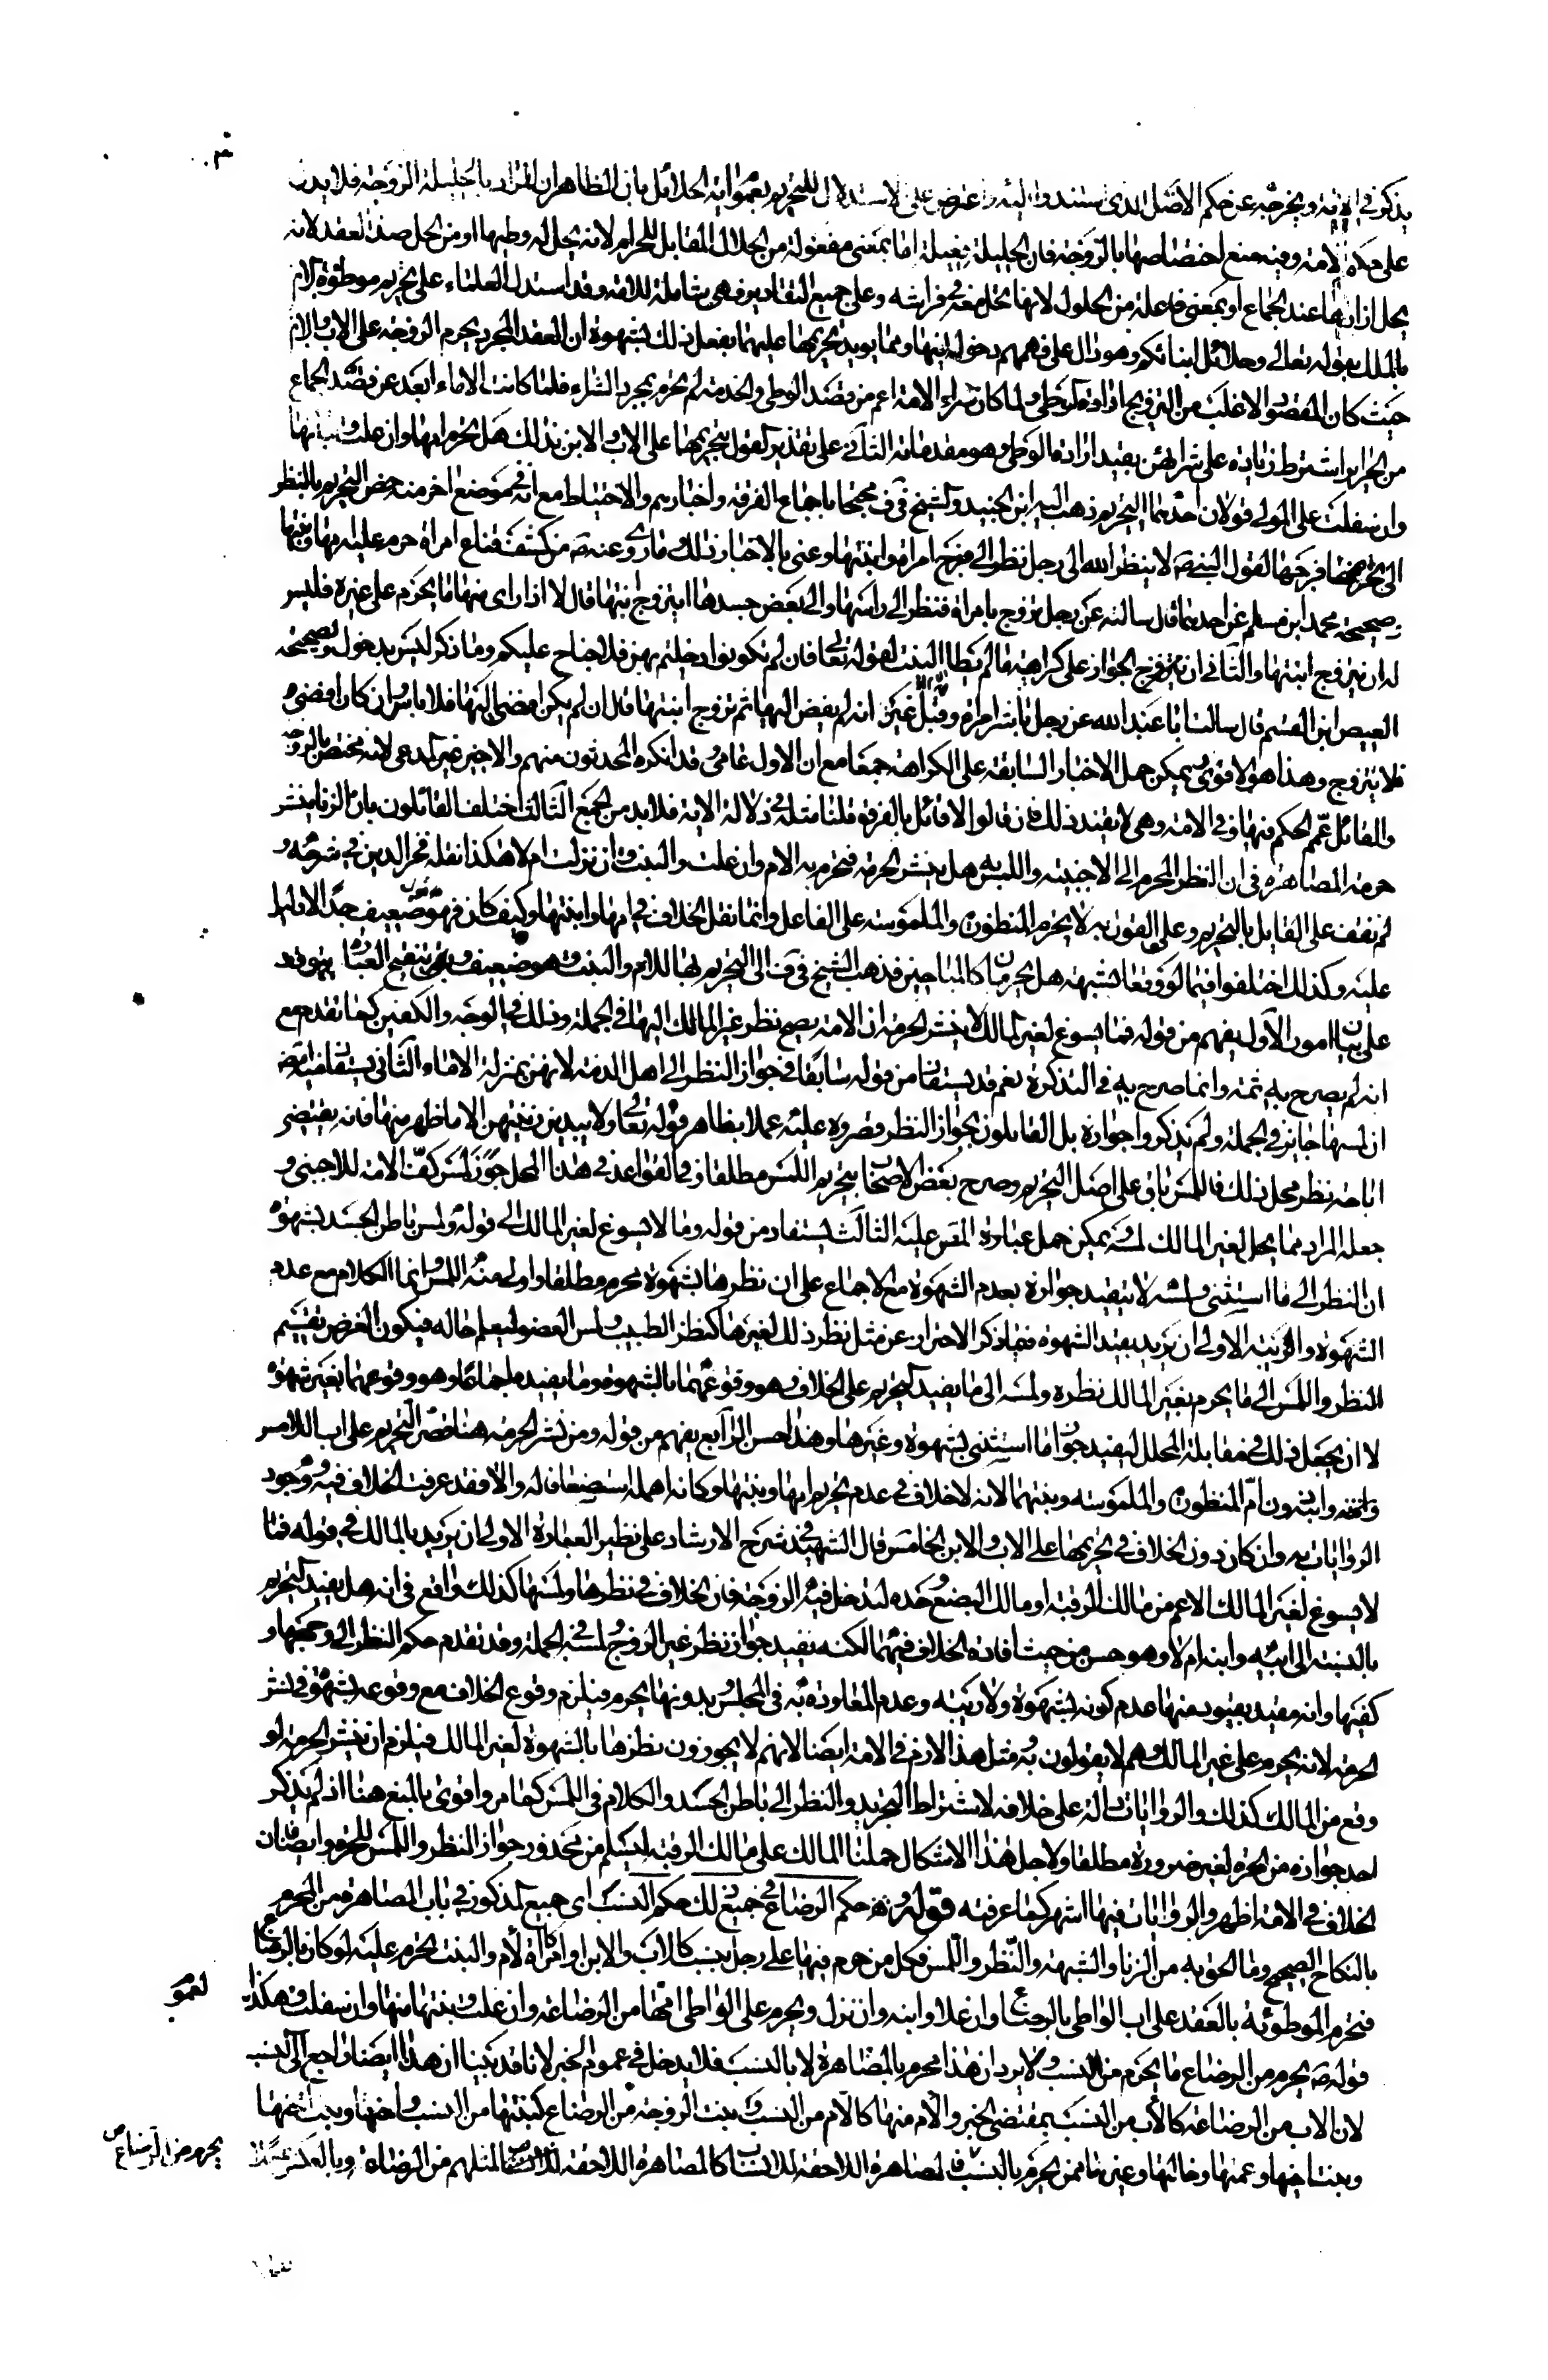 يذكر في الاية ويخرجه عن حكم الاصل الذى استند اليه واعترض على الاستدلال للتحريم بعموم اية الحلائل بان الظاهر ان المراد بالحليلة الزوجة فلا يدل
على حكم الامة وفيه منع اختصاصها بالزوجة فان الحليلة فعيلة اما بمعنى مفعولة من الحلال المقابل للحرام لانه يحل له وطيها او من الحل ضد العقد لانه
يحل ازارها عند الجماع او بمعنى فاعلة من الحلول لانها تحل معه في فراشه وعلى جميع التقادير فهى شاملة للامة وقد استدل العلماء على تحريم موطوءة الام
بالملك بقوله تعالى وحلائل ابنائكم وهو دال على فهمهم دخولها فيها ومما يويد تحريمها عليهما بفعل ذلك بشهوة ان العقد المجرد يحرم الزوجة على الاب والابن
حيث كان المقصود الاغلب من التزويج ارادة الوطى ولما كان شراء الامة اعم من قصد الوطى والخدمة لم تحرم بمجرد الشراء فلما كانت الاماء ابعد عن قصد الجماع
من الحراير اشترط زيادة على شرائهن بقيد ارادة الوطى وهو مقدماته الثانى على تقدير القول بتحريمها على الاب والابن بذلك هل تحرم امها وان علت وبناتها
وان سفلت على المولى قولان احدهما التحريم ذهب اليه ابن الجنيد والشيخ في ف محتجا باجماع الفرقة واخبارهم والاحتياط مع انه في موضع اخر منه خص التحريم بالنظر
الى فرجها لقول النبي ص لا ينظر الله الى رجل نظر الى فرج امراة وابنتها وعنى بالاخبار ذلك وما روى عنه ص من كشف قناع امراة حرم عليه امها وبنتها
وصحيحة محمد ابن مسلم عن احدهما قال سالته عن رجل تزوج بامراة فنظر الى راسها والى بعض جسدها ايتزوج ابنتها قال لا اذا راى منها ما يحرم على غيره فليس
له ان يتزوج ابنتها والثانى ان يتزوج الجواز على كراهية ما لم يطا البنت لقوله تعالى فان لم تكونوا دخلتم بهن فلا جناح عليكم وما ذكر ليس بدخول وصحيحة
العيص ابن القسم قال سالت ابا عبد الله عن رجل باشر امراة وقبل غير انه لم يفض اليها ثم تزوج ابنتها قال ان لم يكن افضى اليها فلا باس وان كان افضى
فلا يتزوج وهذا هو الاقوى ويمكن حمل الاخبار السابقة على الكراهة جمعا مع ان الاول عامى وقد انكره المحدثون منهم والاخير غير المدعى لانه مختص بالزوجة
والقائل عمم الحكم فيها وفي الامة وهى لا يفيد ذلك فان قالوا لا قائل بالفرق قلنا مثله في دلالة الاية فلا بد من الجمع الثالث اختلف القائلون بان الزنا ينشر
حرمة المصاهرة في ان النظر المحرم الى الاجنبية واللمس هل ينشر الحرمة فتحرم به الام وان علت والبنت وان نزلت ام لا هكذا نقله فخر الدين في شرحه و
لم نقف على القايل بالتحريم وعلى القول به لا يحرم المنظورة والملموسة على الفاعل وانما نقل الخلاف في امها وابنتها وكيف كان فهو قول ضعيف جدا لا دليل
عليه وكذلك اختلفوا فيما لو وقعا بشبهة هل يحرمان كالمباحين فذهب الشيخ في ف الى التحريم بها للام والبنت وهو ضعيف وبقى تنقيح العبارة يتوقف
على بيان امور الاول يفهم من قوله فما يسوغ لغير المالك لا ينشر الحرمة ان الامة يصح نظر غير المالك اليها في الجملة وذلك في الوجه والكفين كما تقدم مع
انه لم يصرح به ثمة وانما صرح به في التذكرة نعم قد يستفاد من قوله سابقا في جواز النظر الى اهل الذمة لانهن بمنزلة الاماء الثانى يستفاد منه
ان لمسها جايز في الجملة ولم يذكروا جوازه بل القايلون بجواز النظر قصروه عليه عملا بظاهر قوله تعالى ولا يبدين زينتهن الا ما ظهر منها فانه يقتضى
اباحة نظر محل ذلك فاللمس باق على اصل التحريم وصرح بعض الاصحاب بتحريم اللمس مطلقا وفي القواعد في هذا المحل جوز لمس كف الامة للاجنبى و
جعله المراد مما يحل لغير المالك لمسه ويمكن حمل عبارة المص عليه الثالث يستفاد من قوله وما لا يسوغ لغير المالك الى قوله ولمس باطن الجسد بشهوة
ان النظر الى ما استثنى ولمسه لا يتقيد جوازه بعدم الشهوة مع الاجماع على ان نظرها بشهوة محرم مطلقا واولى منه اللمس وانما الكلام مع عدم
الشهوة والريبة الاولى ان يريد بقيد الشهوة فيما ذكر الاحتراز عن مثل نظر ذلك لغيرها كنظر الطبيب ولمس العضو ليعلم حاله فيكون الغرض تقسيم
النظر واللمس الى ما يحرم بغير المالك نظره ولمسه الى ما يفيد التحريم على الخلاف وهو وقوعهما بالشهوة وما يفيده اجماعا وهو وقوعهما بغير شهوة
لا ان يجعل ذلك في مقابلة المحلل ليفيد جواز ما استثنى بشهوة وغيرها وهذا حسن الرابع يفهم من قوله ومن نشر الحرمة هنا قصر التحريم على اب اللامس
وابنه دون ام المنظورة والملموسة وبنتهما لانه لا خلاف في عدم تحريم امها وبنتها وكانه اهمله استضعافا له والا فقد عرفت الخلاف فيه ووجود
الروايات به وان كان دون الخلاف في تحريمها على الاب والابن الخامس قال الشهيد في شرح الارشاد على نظير العبارة الاولى ان يريد بالمالك في قوله فما
لا يسوغ لغير المالك الاعم من مالك الرقبة او مالك البضع وحده لتدخل فيه الزوجة فان الخلاف في نظرها ولمسها كذلك واقع في انه هل يفيد التحريم
بالنسبة الى ابيه وابنه ام لا وهو حسن من حيث افادة الخلاف فيهما لكنه يفيد جواز نظر غير الزوج ولمسه في الجملة وقد تقدم حكم النظر الى وجهها و
كفيها وانه مقيد بقيود منها عدم كونه بشهوة ولا ريبة وعدم المعاودة به في المجلس وبدونها يحرم فيلزم وقوع الخلاف مع وقوعه بشهوة في نشر
الحرمة لانه يحرم على غير المالك وهم لا يقولون به ومثل هذا لازم في الامة ايضا لانهم لا يجوزون نظرها بالشهوة لغير المالك فيلزم ان ينشر الحرمة لو
وقع من المالك كذلك والروايات دالة على خلافه لاشتراط التجريد والنظر الى باطن الجسد والكلام في اللمس كما مر واقوى بالمنع هنا اذ لم يذكر
احد جوازه من الحرة لغير ضرورة مطلقا ولاجل هذا الاشكال حملنا المالك على مالك الرقبة ليسلم من محذور جواز النظر واللمس للحرة وايضا فان
الخلاف في الامة اظهر والروايات فيها اشهر كما عرفته قوله وحكم الرضاع في جميع ذلك حكم النسب اى جميع المذكور في باب المصاهرة من المحرم
بالنكاح الصحيح وما الحق به من الزنا والشبهة والنظر واللمس فكل من حرم فيها على رجل بنسب كالاب والابن او امراة كالام والبنت تحرم عليه لو كان بالرضاع
فتحرم الموطوئة بالعقد على اب الواطى بالرضاع وان علا وابنه وان نزل ويحرم على الواطى امها من الرضاعة وان علت وبنتها منها وان سفلت وهكذا
لعموم
قوله ص يحرم من الرضاع ما يحرم من النسب ولا يرد ان هذا محرم بالمصاهرة لا بالنسب فلا يدخل في عموم الخبر لانا قد بينا ان هذا ايضا راجع الى النسب
لان الاب من الرضاعة كالاب من النسب بمقتضى الخبر والام منها كالام من النسب وبنت الزوجة من الرضاع كبنتها من النسب واختها وبنت اختها
وبنت اخيها وعمتها وخالتها وغيرها ممن يحرم بالنسب فالمصاهرة اللاحقة للانساب كالمصاهرة اللاحقة لمثلهم من الرضاعة وبالعكس
يحرم من الرضاع ص